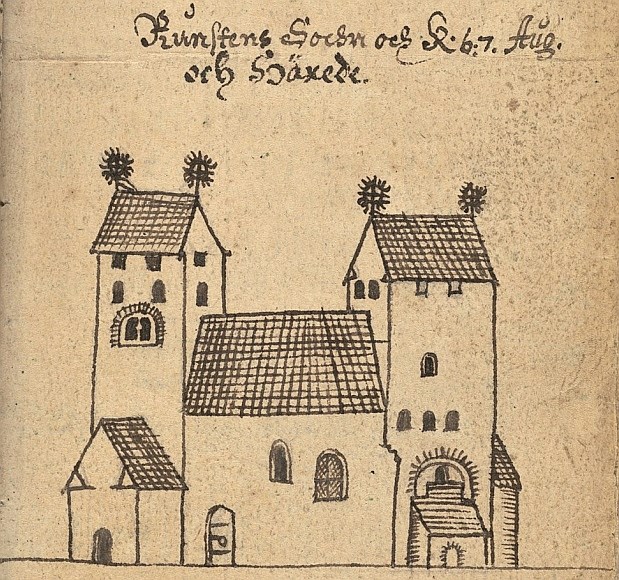 Runstens Sochn och K: 6. 7. Aug.
och Häxede.